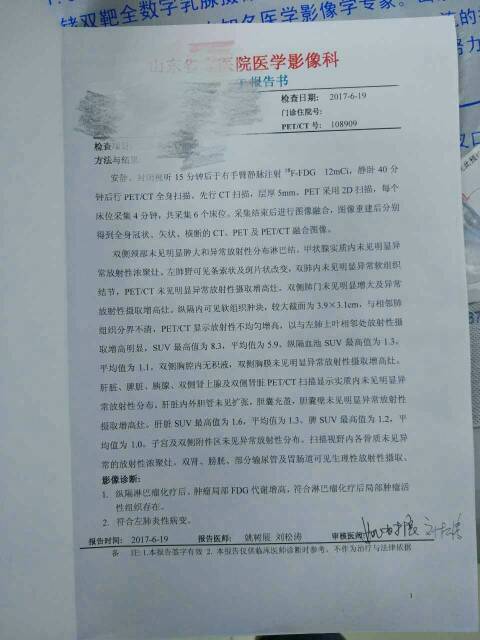 铑双靶全数字乳腺摄
医学影像学专家。
医院医学影像科
报告书
检查日期: 2017-6-19
门诊住院号:
PET/CT 号: 108909
检查
方法与结果
安静、封闭视听 15 分钟后于右手臂静脉注射 18F-FDG 12mCi,静卧 40 分
钟后行 PET/CT 全身扫描。先行 CT 扫描,层厚 5mm。PET 采用 2D 扫描,每个
床位采集 4 分钟,共采集 6 个床位。采集结束后进行图像融合,图像重建后分别
得到全身冠状、矢状、横断的 CT、PET 及 PET/CT 融合图像。
双侧颈部未见明显肿大和异常放射性分布淋巴结。甲状腺实质内未见明显异
常放射性浓聚灶。左肺野可见条索状及斑片状改变,双肺内未见明显异常软组织
结节,PET/CT 未见明显异常放射性摄取增高灶。双侧肺门未见明显增大及异常
放射性摄取增高灶。纵隔内可见软组织肿块,较大截面为 3.9×3.1cm,与相邻肺
组织分界不清,PET/CT 显示放射性不均匀增高,以与左肺上叶相邻处放射性摄
取增高明显,SUV 最高值为 8.3,平均值为 5.9。纵隔血池 SUV 最高值为 1.3,
平均值为 1.1。双侧胸腔内无积液,双侧胸膜未见明显异常放射性摄取增高灶。
肝脏、脾脏、胰腺、双侧肾上腺及双侧肾脏 PET/CT 扫描显示实质内未见明显异
常放射性分布。肝脏内外胆管未见扩张,胆囊充盈,胆囊壁未见明显异常放射性
摄取增高灶。肝脏 SUV 最高值为 1.6,平均值为 1.3。脾 SUV 最高值为 1.2,平
均值为 1.0。子宫及双侧附件区未见异常放射性分布。扫描视野内各骨质未见异
常的放射性浓聚灶。双肾、膀胱、部分输尿管及胃肠道可见生理性放射性摄取。
影像诊断:
1. 纵隔淋巴瘤化疗后,肿瘤局部 FDG 代谢增高,符合淋巴瘤化疗后局部肿瘤活
性组织存在。
2. 符合左肺炎性病变。
报告时间: 2017-6-19 报告医师: 姚树展 刘松涛 审核医师
备 注: 1.本报告签字有效 2. 本报告仅供临床医师诊断时参考,不作为治疗与法律依据
1